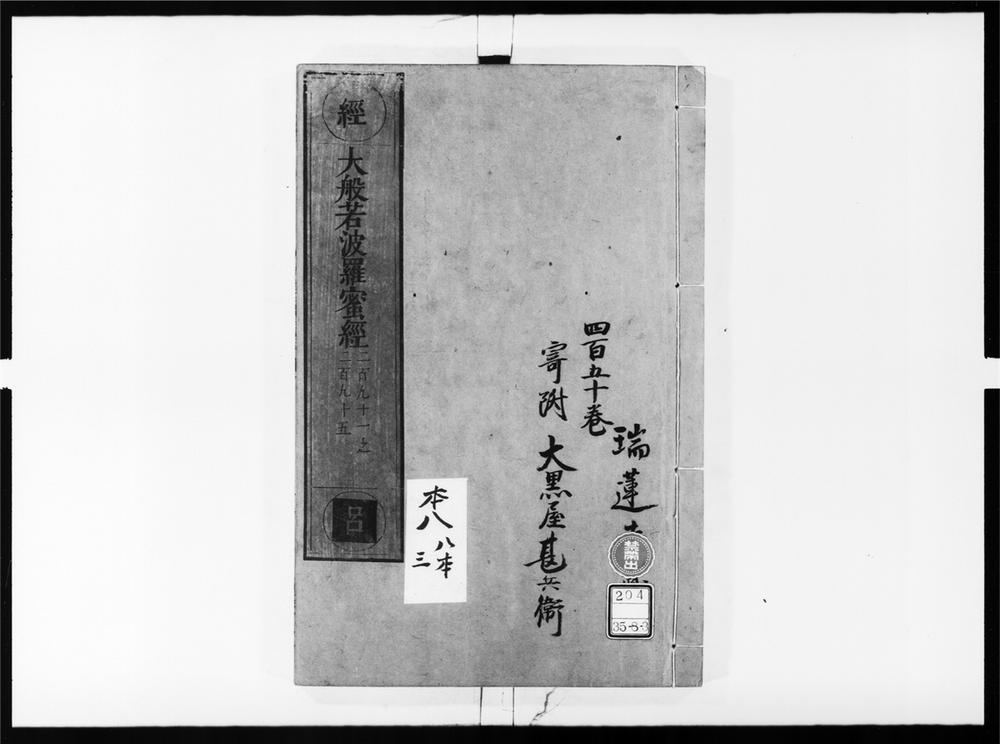 瑞蓮
四百五十巻
寄附 大黒屋甚兵衛
禁帯出
204
35-8-3
經
大般若波羅蜜經
二百九十一之
二百九十五
呂
本八
八本
三